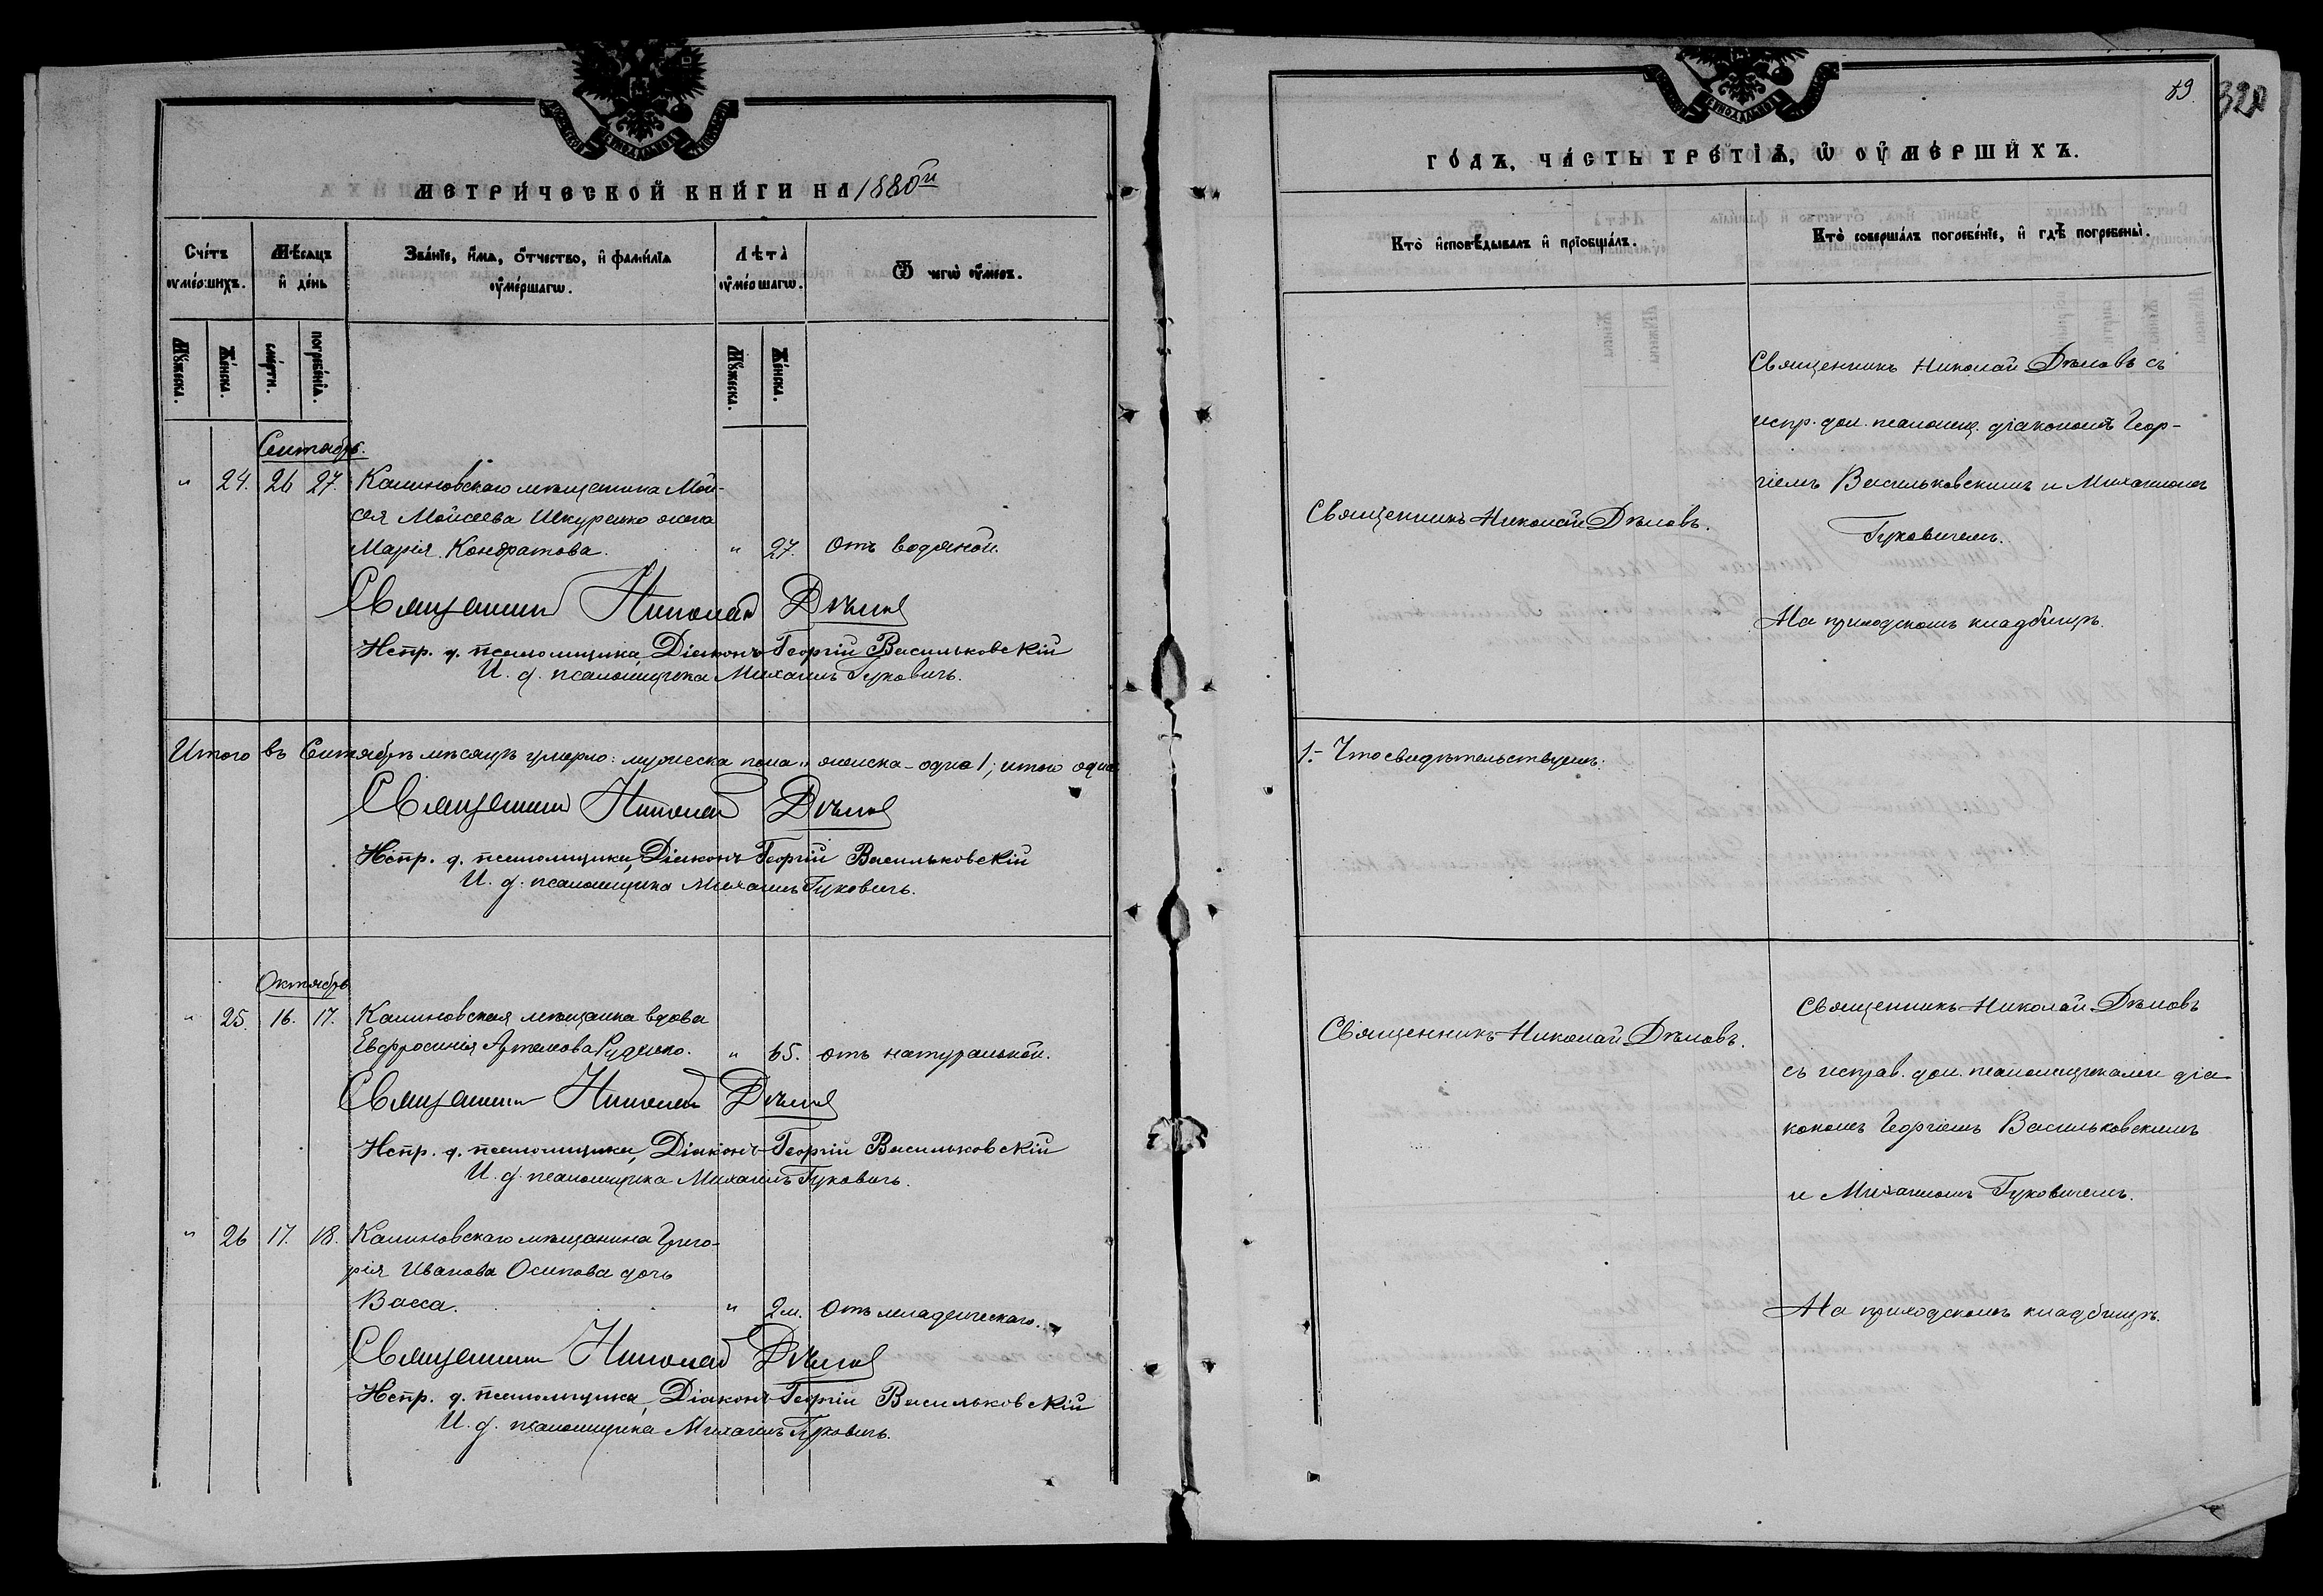 МЕТРИЧЕСКОЙ КНИГИ НА 1880й
Счетъ умершихъ.
Мѣсяцъ и день
Званіе, имя, отчество, и фамилія умершагѡ.
Лѣта умершагѡ.
Ѿ чегѡ умеръ.
Мужеска.
Женска.
смерти.
погребенія.
Мужеска.
Женска.
Сентябрь.
" 24. 26 27. Калиновскаго мѣщанина Мой-
сея Мойсеева Шкуренко жена
Марія Кондратова. " 27. Отъ водяной.
Священникъ Николай Дѣмовъ
Испр. д. псаломщика, Діаконъ Георгій Васильковскій
И. д. псаломщика Михаилъ Гуковичъ.
Итого въ Сентябрѣ мѣсяцѣ умерло: мужеска пола " женска - одна 1, итого одна
Священникъ Николай Дѣмовъ
Испр. д. псаломщика, Діаконъ Георгій Васильковскій
И. д. псаломщика Михаилъ Гуковичъ.
Октябрь
" 25. 16. 17. Калиновская мѣщанка вдова
Евфросинія Артемова Руденко. " 65. отъ натуральной.
Священникъ Николай Дѣмовъ
Испр. д. псаломщика, Діаконъ Георгій Васильковскій
И. д. псаломщика Михаилъ Гуковичъ.
" 26 17. 18. Калиновскаго мѣщанина Григо-
рія Иванова Осипова дочь
Васса. " 2 м. Отъ младенческаго.
Священникъ Николай Дѣмовъ
Испр. д. псаломщика, Діаконъ Георгій Васильковскій
И. д. псаломщика Михаилъ Гуковичъ.
89.
320
ГОДЪ, ЧАСТЬ ТРЕТІЯ, Ѡ УМЕРШИХЪ.
Кто исповѣдывалъ и пріобщалъ.
Кто совершалъ погребеніе, и гдѣ погребены.
Священникъ Николай Дѣмовъ.
Священникъ Николай Дѣмовъ съ
испр. дол. псаломщ. діакономъ Геор-
гіемъ Васильковскимъ и Михаиломъ
Гуковичемъ.
На приходскомъ кладбищѣ.
1.- Что свидѣтельствуемъ:
Священникъ Николай Дѣмовъ.
Священникъ Николай Дѣмовъ
съ исправ. дол. псаломщиками діа-
кономъ Георгіемъ Васильковскимъ
и Михаиломъ Гуковичемъ.
На приходскомъ кладбищѣ.